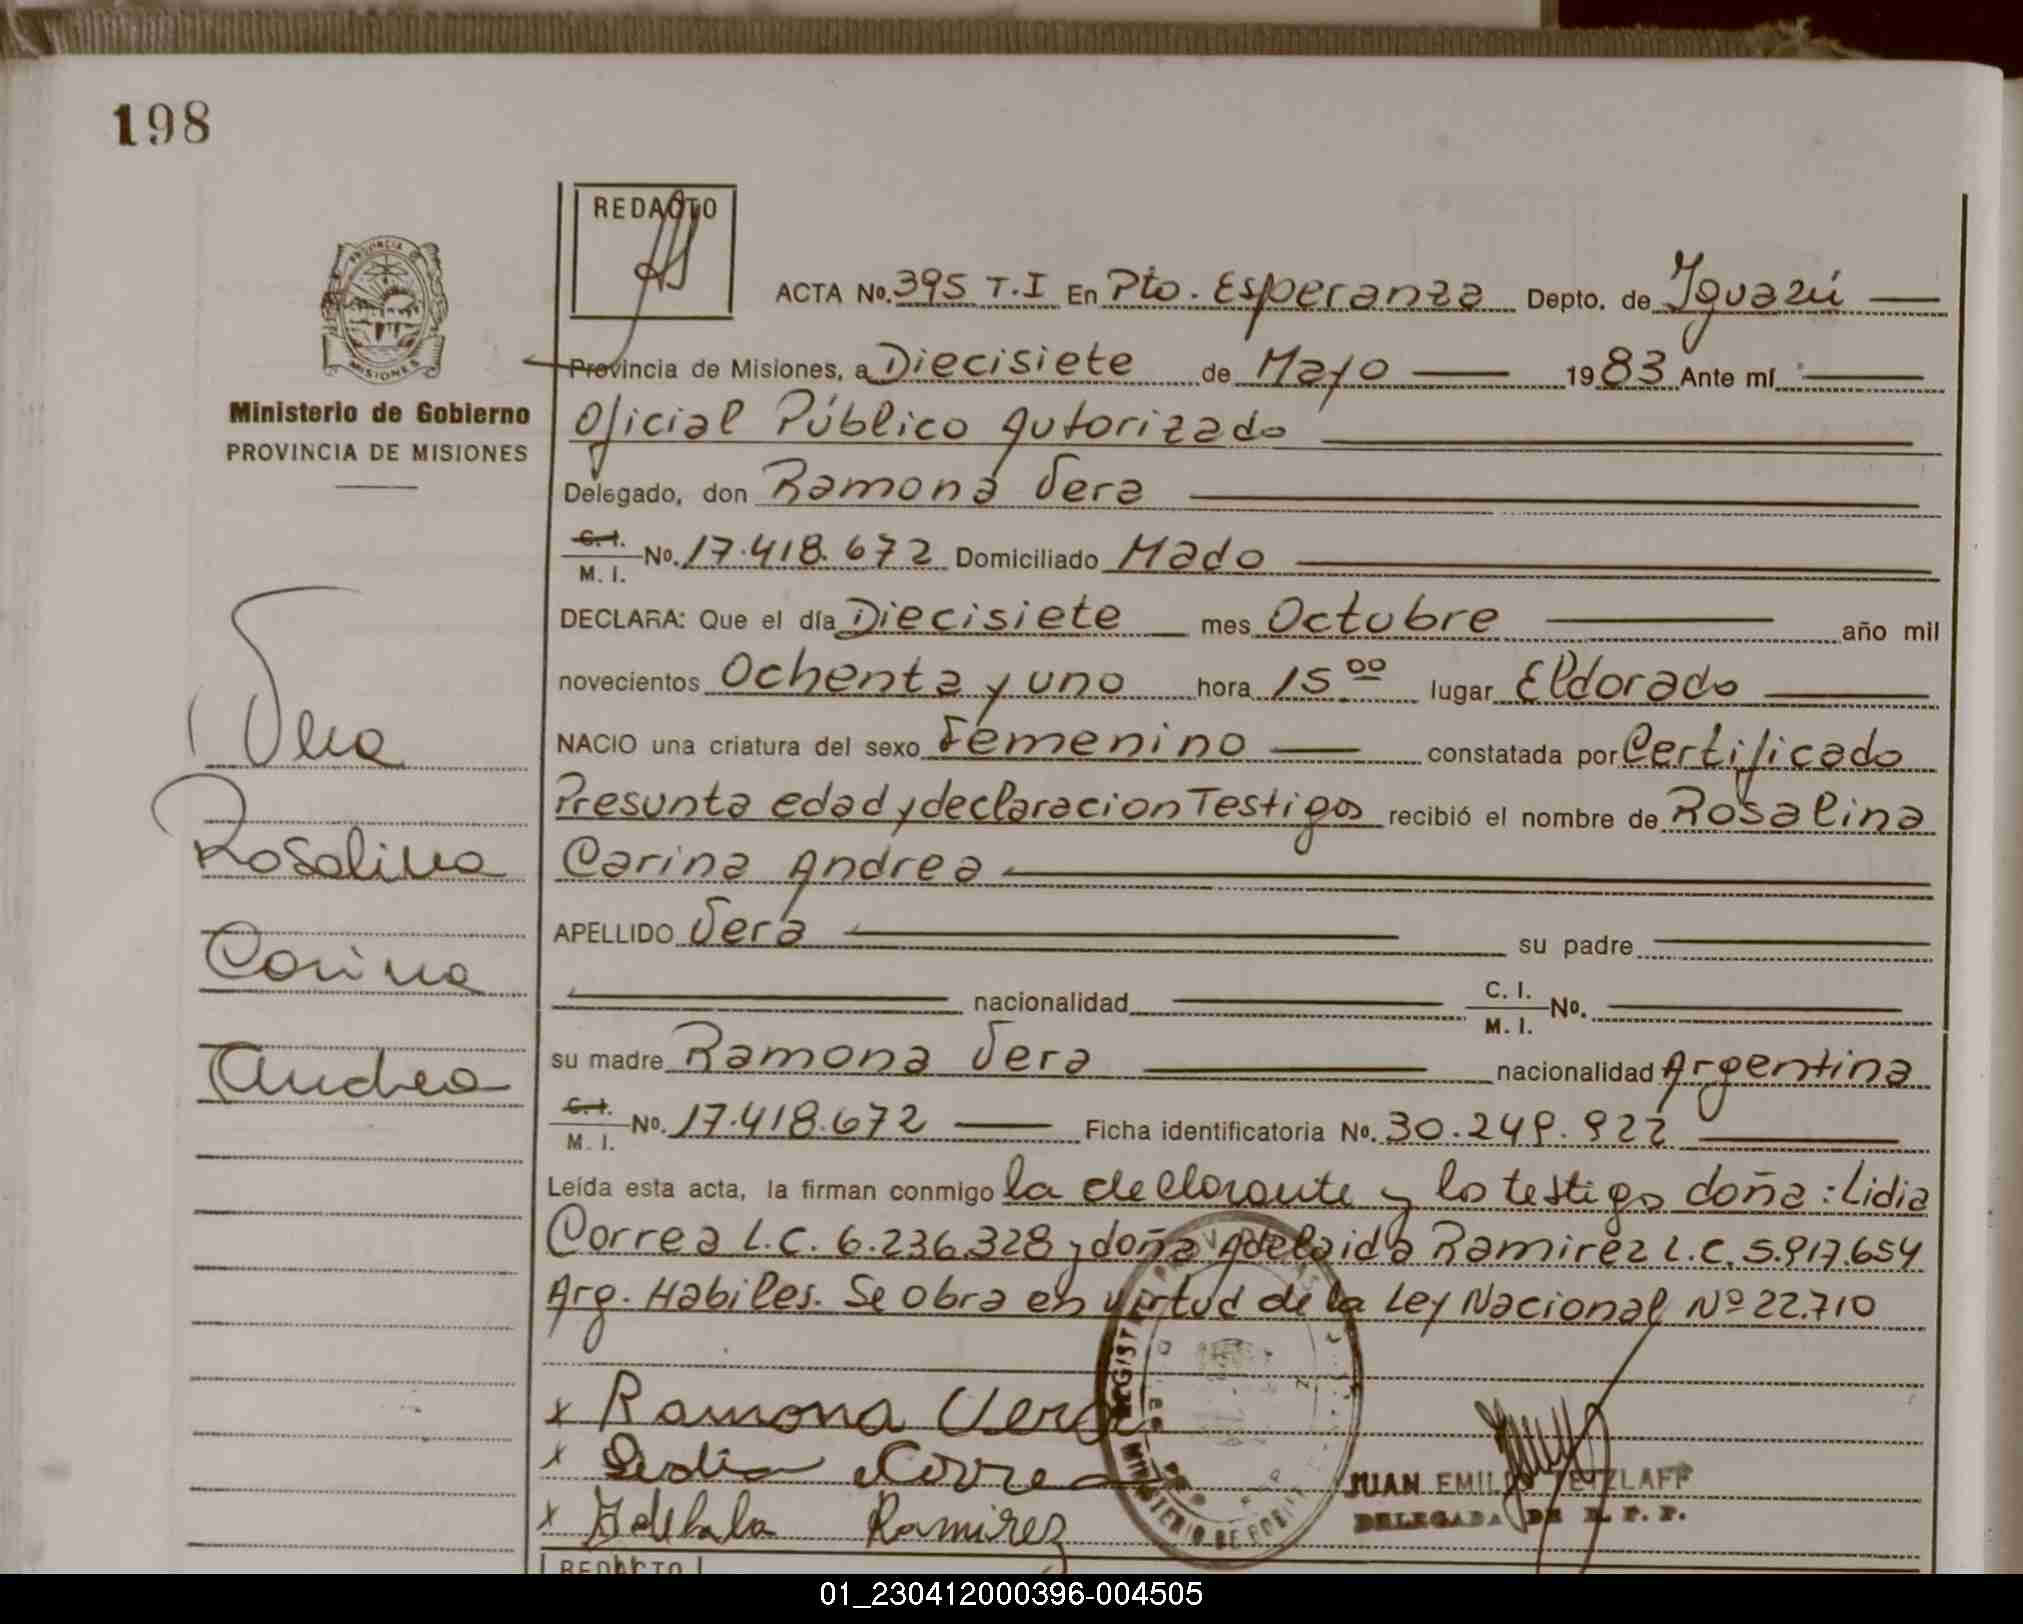 198
REDACTO
ACTA No. 395 T.I En Pto. Esperanza Depto. de Iguazú
Provincia de Misiones, a Diecisiete de Mayo 1983 Ante mí
Ministerio de Gobierno
PROVINCIA DE MISIONES
Oficial Público Autorizado
Delegado, don Ramona Vera
C. I. M. I. No. 17.418.672 Domiciliado Mado
DECLARA: Que el día Diecisiete mes Octubre año mil
novecientos Ochenta y uno hora 15.00 lugar Eldorado
NACIO una criatura del sexo Femenino constatada por Certificado
Presunta edad y declaracion Testigos recibió el nombre de Rosalina
Carina Andrea
APELLIDO Vera su padre
nacionalidad C. I. M. I. No.
su madre Ramona Vera nacionalidad Argentina
C. I. M. I. No. 17.418.672 Ficha identificatoria No. 30.249.922
Leída esta acta, la firman conmigo la declarante y los testigos doña: Lidia
Correa L.C. 6.236.328 y doña Adelaida Ramirez L.C. 5.917.654
Arg. Habiles. Se obra en virtud de la Ley Nacional Nº 22.710
Vera
Rosalina
Carina
Andrea
x Ramona Vera
x Lidia Correa
x Ramirez
JUAN EMILIO
DELEGADA DE R. P. P.
REDACTO
01_230412000396-004505